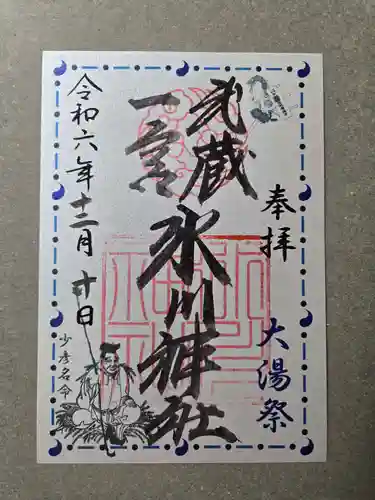 奉拝 大湯祭
武蔵
一宮
氷川神社
令和六年十二月十日
少彦名命